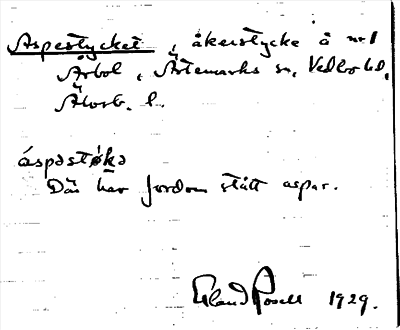 Aspestycket, åkerstycke å nr 1
Årbol, Ärtemarks sn, Vedbo hd,
Älvsb. l.
áspəstøkə
Där har fordom stått aspar.
Erland Rosell 1929.